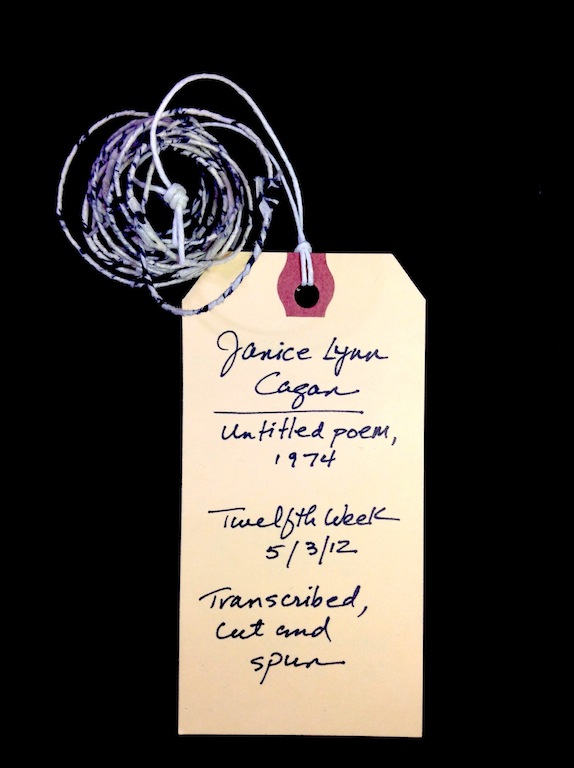 Janice Lynn
Cagan
Untitled poem,
1974
Twelfth Week
5/3/12
Transcribed,
cut and
spun